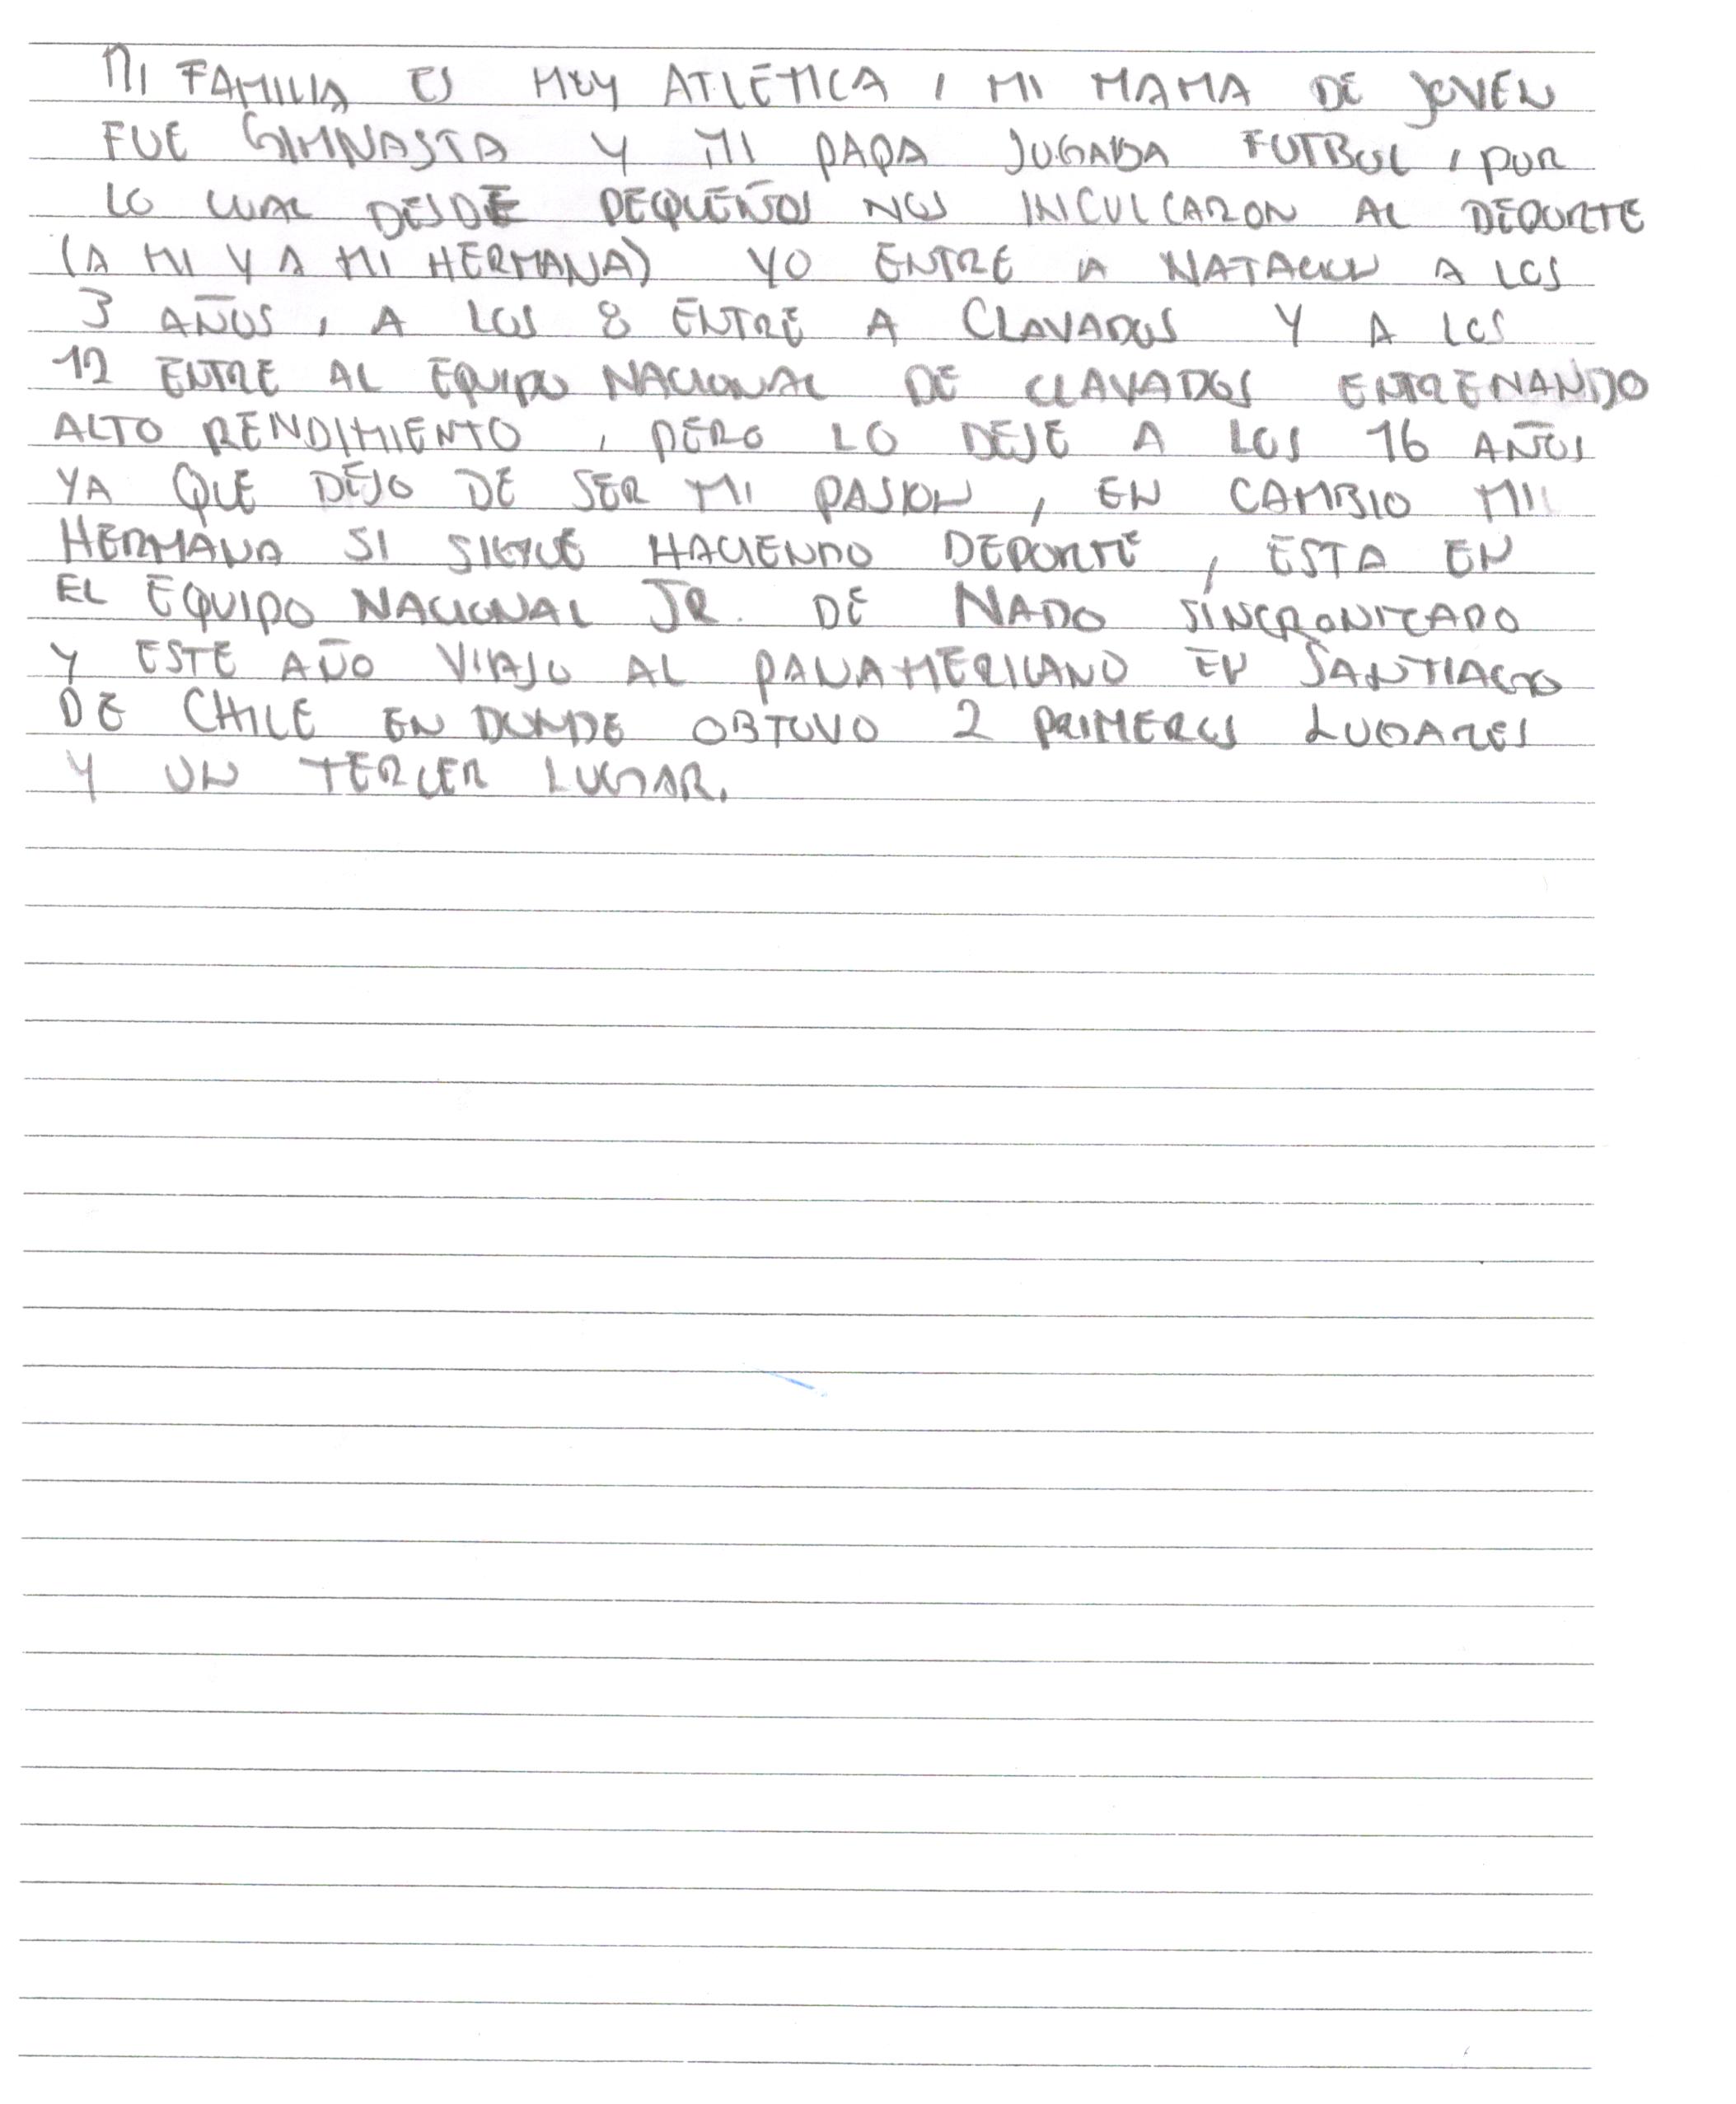 MI FAMILIA ES MUY ATLETICA , MI MAMA DE JOVEN
FUE GIMNASTA Y MI PAPA JUGABA FUTBOL , POR
LO CUAL DESDE PEQUEÑOS NOS INCULCARON AL DEPORTE
(A MI Y A MI HERMANA) YO ENTRE A NATACION A LOS
3 AÑOS , A LOS 8 ENTRE A CLAVADOS Y A LOS
12 ENTRE AL EQUIPO NACIONAL DE CLAVADOS ENTRENANDO
ALTO RENDIMIENTO , PERO LO DEJE A LOS 16 AÑOS
YA QUE DEJO DE SER MI PASION , EN CAMBIO MI
HERMANA SI SIGUE HACIENDO DEPORTE , ESTA EN
EL EQUIPO NACIONAL JR. DE NADO SINCRONIZADO
Y ESTE AÑO VIAJO AL PANAMERICANO EN SANTIAGO
DE CHILE EN DONDE OBTUVO 2 PRIMEROS LUGARES
Y UN TERCER LUGAR.